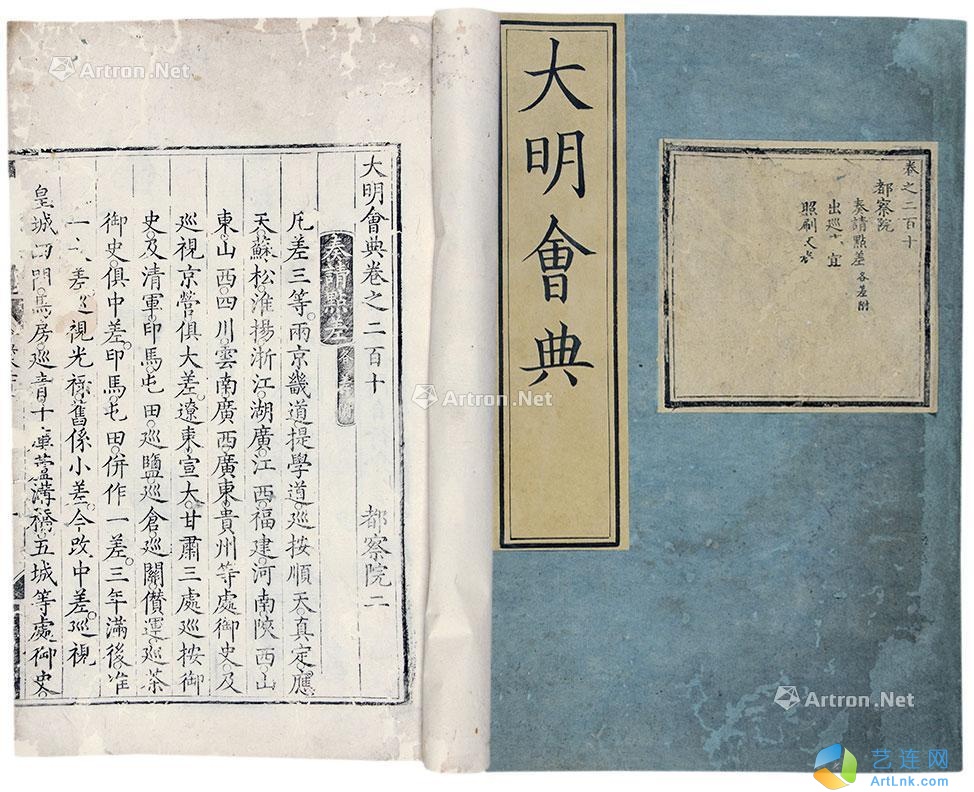 大明會典
卷之二百十
都察院
奏請點差 各差附
出巡 宜
照刷文卷
大明會典卷之二百十
都察院二
奏請點差
凡差三等。兩京畿道提學道。巡按順天。真定。應
天。蘇松。淮揚。浙江。湖廣。江西。福建。河南。陝西。山
東。山西。四川。雲南。廣西。廣東。貴州等處御史。及
巡視京營。俱大差。遼東。宣大。甘肅三處巡按御
史。及清軍。印馬。屯田。巡鹽。巡倉。巡關。儹運。巡茶
御史。俱中差。印馬。屯田。併作一差。三年滿後。准
一 差。巡視光祿。舊係小差。今改中差。巡視
皇城四門。馬房。巡 十庫。蘆溝橋。五城等處御史
Artron.Net
Artron.Net
Artron.Net
艺连网
ArtLnk.com